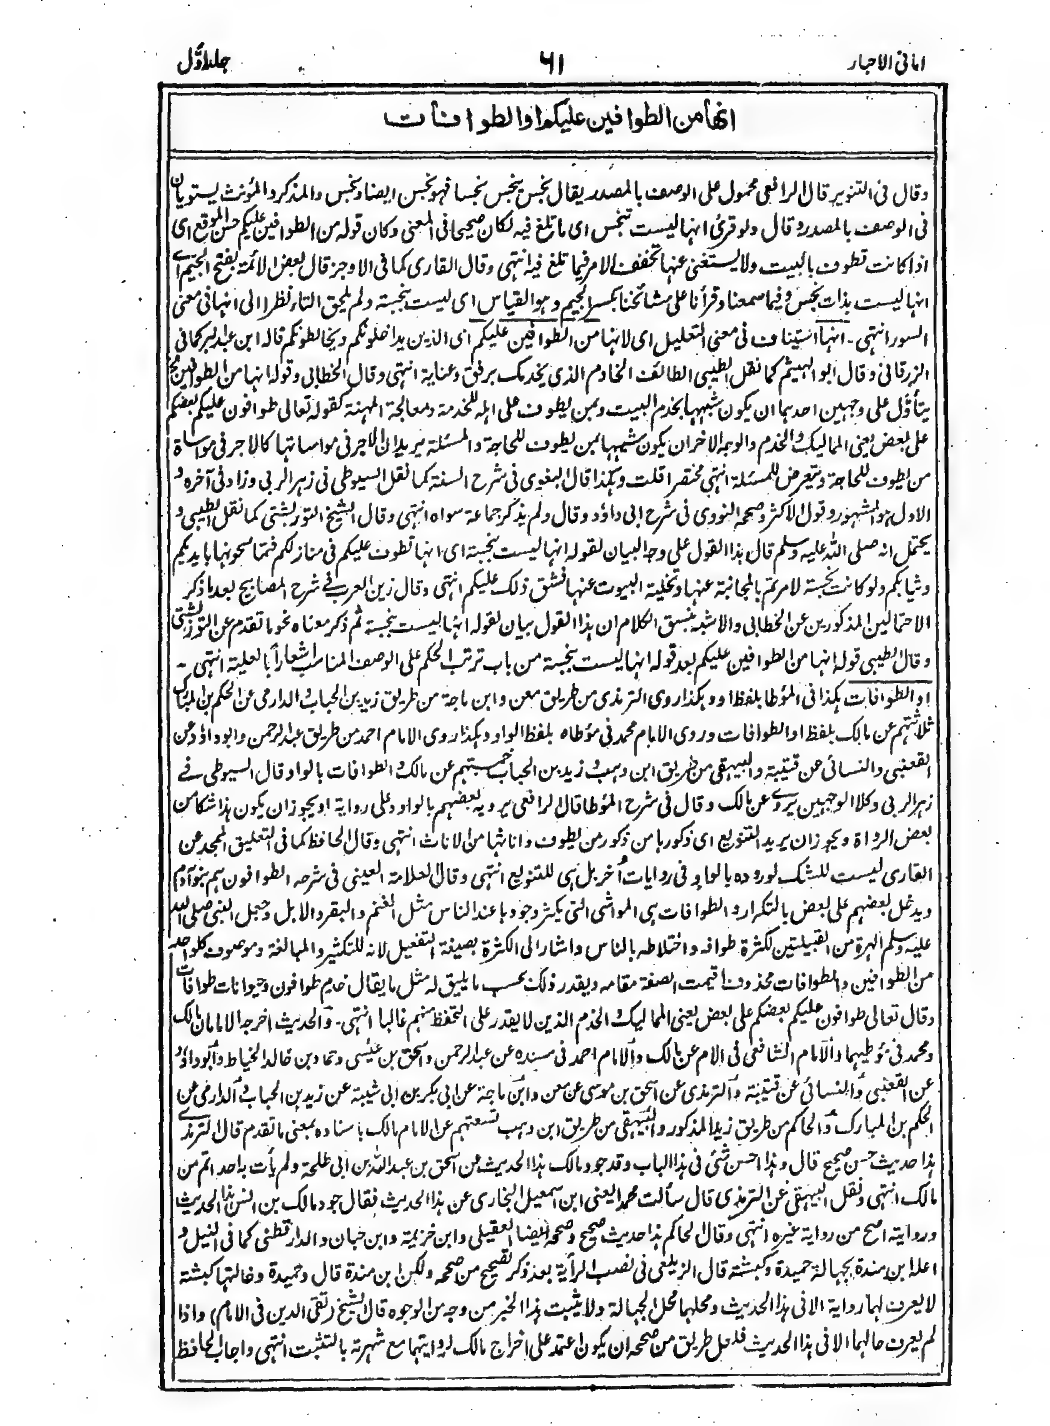 امانی الاحبار ٦١ جلد اوّل
انها من الطوافین علیکم او الطوافات
وقال فی التنویر قال الرافعی محمول علی الوصف بالمصدر یقال نجس ینجس نجسا فهو نجس ایضا ونجس والمذکر والمؤنث یستویان
فی الوصف بالمصدر وقال ولو قرئ انها لیست تنجس ای ما تلغ فیه لکان صحیحا فی المعنی وکان قوله من الطوافین علیکم حسن الموقع ای
اذا کانت تطوف بالبیت ولا یستغنی عنها تخفف الامر فیما تلغ فیه انتهی وقال القاری کما فی الاوجز قال بعض الائمة بفتح الجیم ای
انها لیست بذات نجس وفیما سمعنا وقرأنا علی مشائخنا بکسر الجیم وهو القیاس ای لیست بنجسة ولم یلحق التاء نظرا الی انها فی معنی
السور انتهی ۔ انها استیناف فی معنی التعلیل ای لانها من الطوافین علیکم ای الذین یداخلونکم ویخالطونکم قاله ابن عبد البر کما فی
الزرقانی وقال ابو الهیثم کما نقل الطیبی الطائف الخادم الذی یخدمک برفق وعنایة انتهی وقال الخطابی وقوله انها من الطوافین
یتأول علی وجهین احدهما ان یکون شبهها بخدم البیت وبمن یطوف علی اهله للخدمة ومعالجة المهنة کقوله تعالی طوافون علیکم بعضکم
علی بعض یعنی الممالیک والخدم والوجه الاخر ان یکون شبهها بمن یطوف للحاجة والمسئلة یرید ان الاجر فی مواساتها کالاجر فی مواساة
من یطوف للحاجة ویتعرض للمسئلة انتهی مختصرا قلت وهکذا قال البغوی فی شرح السنة کما نقل السیوطی فی زهر الربی وزاد فی آخره و
الاول هو المشهور وقول الاکثر وصححه النووی فی شرح ابی داؤد وقال ولم یذکر جماعة سواه انتهی وقال الشیخ التوربشتی کما نقل الطیبی و
یحتمل انه صلی الله علیه وسلم قال هذا القول علی وجه البیان لقوله انها لیست بنجسة ای انها تطوف علیکم فی منازلکم فتماسحونها بایدیکم
وثیابکم ولو کانت نجسة لامرتم بالمجانبة عنها وتخلیة البیوت عنها فشق ذلک علیکم انتهی وقال زین العرب فی شرح المصابیح بعد ما ذکر
الاحتمالین المذکورین عن الخطابی والاشبه بنسق الکلام ان هذا القول بیان لقوله انها لیست بنجسة ثم ذکر معناه نحو ما تقدم عن التوربشتی
وقال الطیبی قوله انها من الطوافین علیکم بعد قوله انها لیست بنجسة من باب ترتب الحکم علی الوصف المناسب اشعارا بالعلیة انتهی ۔
او الطوافات هکذا فی المؤطا بلفظ او وهکذا روی الترمذی من طریق معن وابن ماجة من طریق زید بن الحباب والدارمی عن الحکم بن المبارک
ثلاثتهم عن مالک بلفظ او الطوافات وروی الامام محمد فی مؤطاه بلفظ الواو وهکذا روی الامام احمد من طریق عبد الرحمن وابو داؤد عن
القعنبی والنسائی عن قتیبة والبیهقی من طریق ابن وهب وزید بن الحباب خمستهم عن مالک والطوافات بالواو قال السیوطی فی
زهر الربی وکلا الوجهین یروی عن مالک وقال فی شرح المؤطا قال الرافعی یرویه بعضهم بالواو وعلی روایة او یجوز ان یکون هذا شکا من
بعض الرواة ویجوز ان یرید التنویع ای ذکورها من ذکور من یطوف واناثها من الاناث انتهی وقال الحافظ کما فی التعلیق الممجد عن
القاری لیست للشک لوروده بالواو فی روایات أخر بل هی للتنویع انتهی وقال العلامة العینی فی شرحه الطوافون هم بنو آدم
ویدخل بعضهم علی بعض بالتکرار والطوافات هی المواشی التی یکثر وجودها عند الناس مثل الغنم والبقر والابل وجعل النبی صلی الله
علیه وسلم الهرة من القبیلتین لکثرة طوافه واختلاطه بالناس واشار الی الکثرة بصیغة التفعیل لانه للتکثیر والمبالغة وموصوف کلواحد
من الطوافین والطوافات محذوف اقیمت الصفة مقامه ویقدر ذلک بحسب ما یلیق له مثل ما یقال خدم طوافون وحیوانات طوافات
وقال تعالی طوافون علیکم بعضکم علی بعض یعنی الممالیک والخدم الذین لا یقدر علی التحفظ منهم غالبا انتهی ۔ والحدیث اخرجه الامامان مالک
ومحمد فی مؤطیهما والامام الشافعی فی الام عن مالک والامام احمد فی مسنده عن عبد الرحمن واسحق بن عیسی وحماد بن خالد الخیاط وابوداؤد
عن القعنبی والنسائی عن قتیبة والترمذی عن اسحق بن موسی عن معن وابن ماجة عن ابی بکر بن ابی شیبة عن زید بن الحباب والدارمی عن
الحکم بن المبارک والحاکم من طریق زید المذکور والبیهقی من طریق ابن وهب تسعتهم عن الامام مالک باسناده بمعنی ما تقدم قال الترمذی
هذا حدیث حسن صحیح قال وهذا احسن شئی فی هذا الباب وقد جود مالک هذا الحدیث عن اسحق بن عبد الله بن ابی طلحة ولم یأت به احد اتم من
مالک انتهی ونقل البیهقی عن الترمذی قال سألت محمدا یعنی ابن اسمعیل البخاری عن هذا الحدیث فقال جود مالک بن انس هذا الحدیث
وروایته اصح من روایة غیره انتهی وقال الحاکم هذا حدیث صحیح وصححه ایضا العقیلی وابن خزیمة وابن حبان والدارقطنی کما فی النیل و
اعله ابن مندة بجهالة حمیدة وکبشة قال الزیلعی فی نصب الرأیة بعد ذکر تصحیح من صححه ولکن ابن مندة قال وحمیدة وخالتها کبشة
لا یعرف لهما روایة الا فی هذا الحدیث ومحلهما محل الجهالة ولا یثبت هذا الخبر من وجه من الوجوه قال الشیخ (تقی الدین فی الامام) واذا
لم یعرف حالهما الا فی هذا الحدیث فلعل طریق من صححه ان یکون اعتمد علی اخراج مالک لروایتهما مع شهرته بالتثبت انتهی واجاب الحافظ